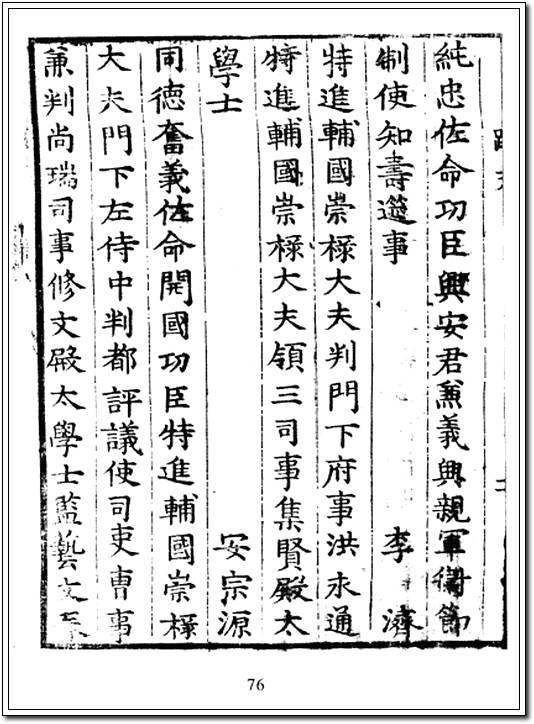 純忠佐命功臣興安君兼義興親軍衛節
制使知壽邊事 李 濟
特進輔國崇祿大夫判門下府事洪永通
特進輔國崇祿大夫領三司事集賢殿太
學士 安宗源
同德奮義佐命開國功臣特進輔國崇祿
大夫門下左侍中判都評議使司吏曹事
兼判尚瑞司事修文殿太學士監藝文春
76